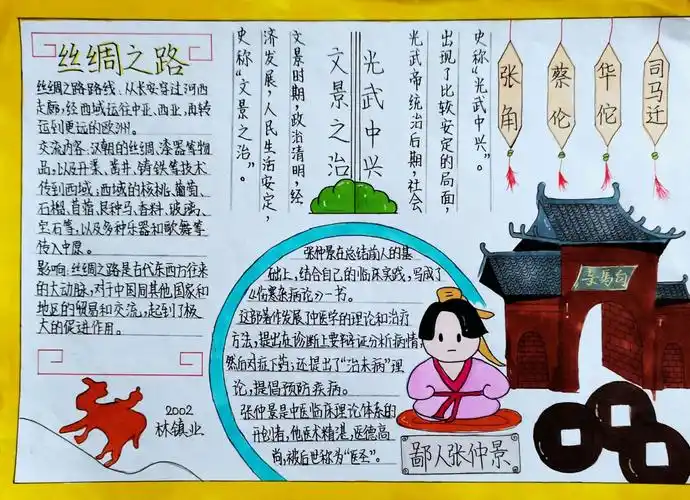 丝绸之路
丝绸之路路线、从长安穿过河西
走廊,经西域运往中亚、西亚,再转
运到更远的欧洲。
交流内容、汉朝的丝绸、漆器等物
品,以及开渠、凿井、铸铁等技术
传到西域,西域的核桃、葡萄、
石榴、苜蓿、良种马、香料、玻璃、
宝石等,以及多种乐器和歌舞等
传入中原。
影响:丝绸之路是古代东西方往来
的大动脉,对于中国同其他国家和
地区的贸易和交流,起到了极
大的促进作用。
2002
林镇业
文景之治
文景时期,政治清明,经
济发展,人民生活安定,
史称“文景之治”。
光武中兴
光武帝统治后期,社会
出现了比较安定的局面,
史称“光武中兴”。
张角
蔡伦
华佗
司马迁
张仲景在总结前人的基
础上,结合自己的临床实践,写成了
《伤寒杂病论》一书。
这部著作发展了中医学的理论和治疗
方法,提出在诊断上要辩证分析病情,
然后对症下药;还提出了“治未病”理
论,提倡预防疾病。
张仲景是中医临床理论体系的
开创者,他医术精湛,医德高
尚,被后世称为“医圣”。
鄙人张仲景
寺馬白